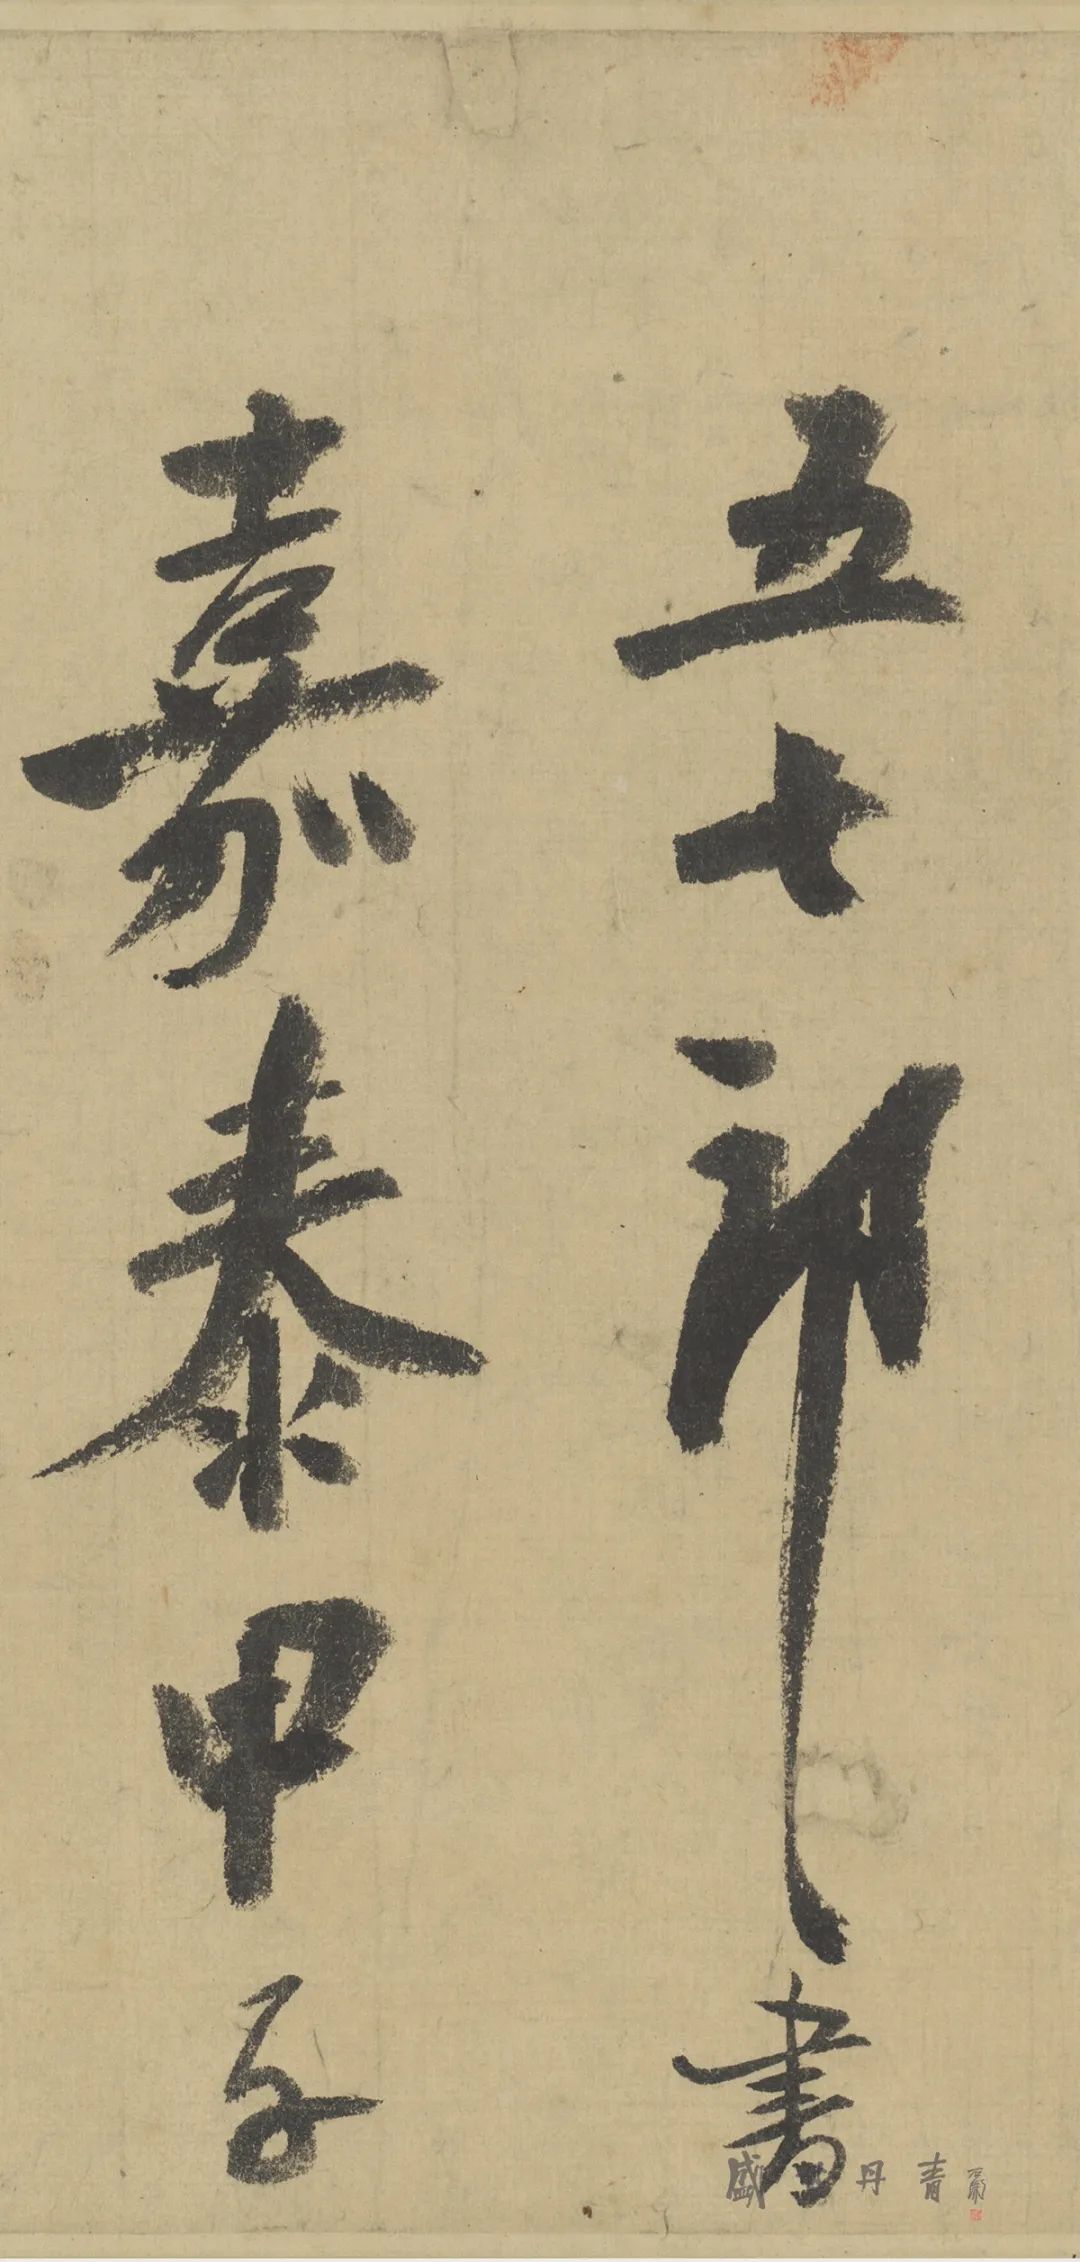 五七郎書
嘉泰甲子
盛 丹青